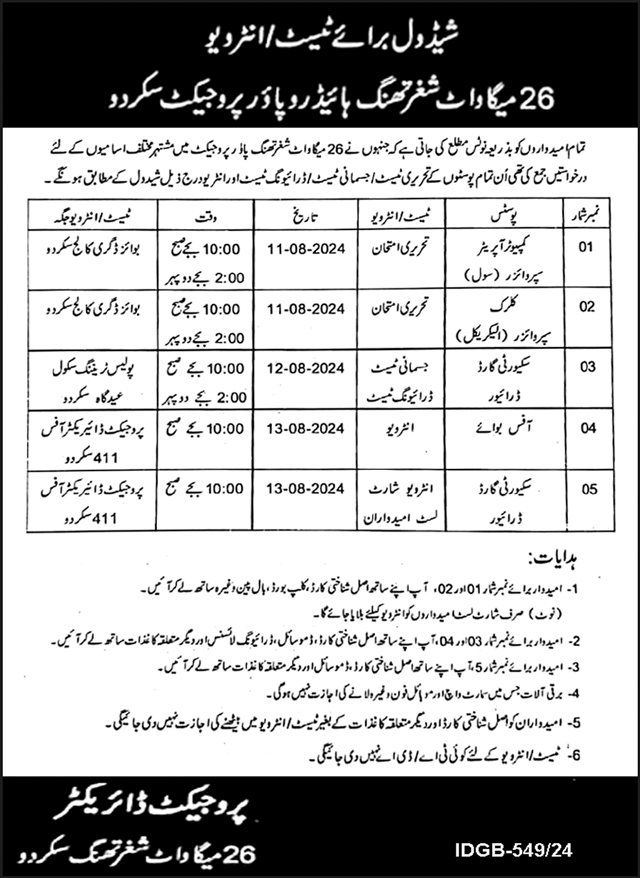 شیڈول برائے ٹیسٹ/انٹرویو
26 میگا واٹ شغرتھنگ ہائیڈرو پاؤر پروجیکٹ سکردو
تمام امیدواروں کو بذریعہ نوٹس مطلع کی جاتی ہے کہ جنہوں نے 26 میگا واٹ شغرتھنگ پاؤر پروجیکٹ میں مشتہر مختلف اسامیوں کے لئے
درخواستیں جمع کی تھی اُن تمام پوسٹوں کے تحریری ٹیسٹ/جسمانی ٹیسٹ/ڈرائیونگ ٹیسٹ اور انٹرویو درج ذیل شیڈول کے مطابق ہونگے۔
نمبر شمار پوسٹس ٹیسٹ/انٹرویو تاریخ وقت ٹیسٹ/انٹرویو جگہ
01 کمپیوٹر آپریٹر تحریری امتحان 11-08-2024 10:00 بجے صبح بوائز ڈگری کالج سکردو
سپروائزر (سول) 2:00 بجے دوپہر
02 کلرک تحریری امتحان 11-08-2024 10:00 بجے صبح بوائز ڈگری کالج سکردو
سپروائزر (الیکٹریکل) 2:00 بجے دوپہر
03 سکیورٹی گارڈ جسمانی ٹیسٹ 12-08-2024 10:00 بجے صبح پولیس ٹریننگ سکول
ڈرائیور ڈرائیونگ ٹیسٹ 2:00 بجے دوپہر عیدگاہ سکردو
04 آفس بوائے انٹرویو 13-08-2024 10:00 بجے صبح پروجیکٹ ڈائیریکٹر آفس
411 سکردو
05 سکیورٹی گارڈ انٹرویو شارٹ 13-08-2024 10:00 بجے صبح پروجیکٹ ڈائیریکٹر آفس
ڈرائیور لسٹ امیدواران 411 سکردو
ہدایات:
1- امیدوار برائے نمبر شمار 01 اور 02، آپ اپنے ساتھ اصل شناختی کارڈ، کلپ بورڈ، بال پین وغیرہ ساتھ لے کر آئیں۔
(نوٹ) صرف شارٹ لسٹ امیدواروں کو انٹرویو کیلئے بلایا جائے گا۔
2- امیدوار برائے نمبر شمار 03 اور 04، آپ اپنے ساتھ اصل شناختی کارڈ، ڈموسائل، ڈرائیونگ لائسنس اور دیگر متعلقہ کاغذات ساتھ لے کر آئیں۔
3- امیدوار برائے نمبر شمار 5، آپ اپنے ساتھ اصل شناختی کارڈ، ڈموسائل اور دیگر متعلقہ کاغذات ساتھ لے کر آئیں۔
4- برقی آلات جس میں سمارٹ واچ اور موبائل فون وغیرہ لانے کی اجازت نہیں ہوگی۔
5- امیدواران کو اصل شناختی کارڈ اور دیگر متعلقہ کاغذات کے بغیر ٹیسٹ/انٹرویو میں بیٹھنے کی اجازت نہیں دی جائیگی۔
6- ٹیسٹ/انٹرویو کے لئے کوئی ٹی اے/ڈی اے نہیں دی جائیگی۔
پروجیکٹ ڈائریکٹر
26 میگا واٹ شغرتھنگ سکردو
IDGB-549/24